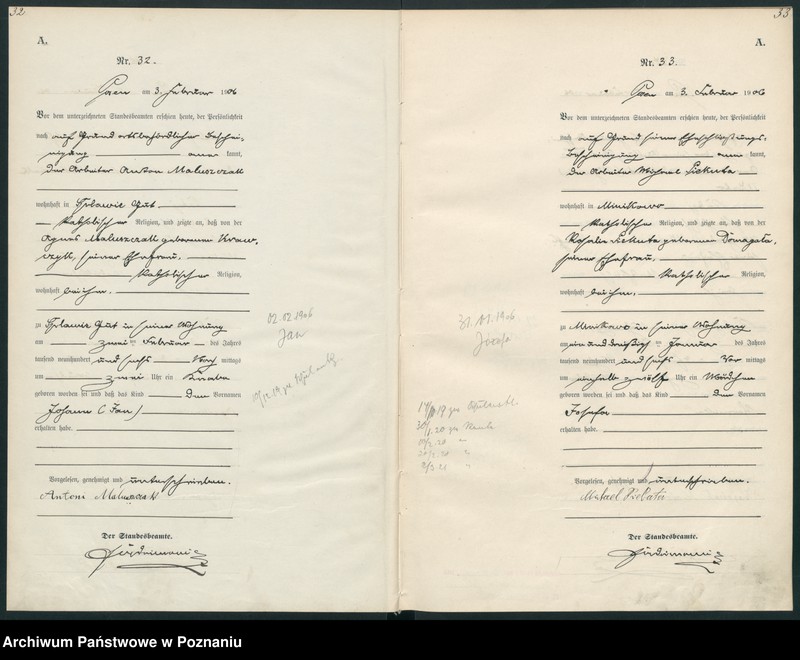 32
A.
Nr. 32.
am 3. Februar 1906
Vor dem unterzeichneten Standesbeamten erschien heute, der Persönlichkeit
nach auf Grund ortsbehördlicher Beschei-
nigung kannt,
der Arbeiter Anton Maluszczak
wohnhaft in Gut
katholischer Religion, und zeigte an, daß von der
Agnes Maluszczak geborenen Kraw-
czyk, seiner Ehefrau,
katholischer Religion,
wohnhaft bei ihm,
zu Gut in seiner Wohnung
am zwei ten Februar des Jahres
tausend neunhundert und sechs Vor mittags
um zwei Uhr ein Knabe
geboren worden sei und daß das Kind den Vornamen
Johann (Jan)
erhalten habe.
Vorgelesen, genehmigt und unterschrieben.
Antoni Maluszczak
Der Standesbeamte.
02.02.1906
Jan
33
A.
Nr. 33.
am 3. Februar 1906
Vor dem unterzeichneten Standesbeamten erschien heute, der Persönlichkeit
nach auf Grund seiner Eheschließungs-
bescheinigung kannt,
der Arbeiter Michael Piekuta
wohnhaft in Mnikowo
katholischer Religion, und zeigte an, daß von der
Rosalie Piekuta geborenen Domagała,
seiner Ehefrau,
katholischer Religion,
wohnhaft bei ihm,
zu Mnikowo in seiner Wohnung
am ein und dreißigsten Januar des Jahres
tausend neunhundert und sechs Vor mittags
um einhalb zwölf Uhr ein Mädchen
geboren worden sei und daß das Kind den Vornamen
Josefa
erhalten habe.
Vorgelesen, genehmigt und unterschrieben.
Der Standesbeamte.
31.01.1906
Józefa
Archiwum Państwowe w Poznaniu